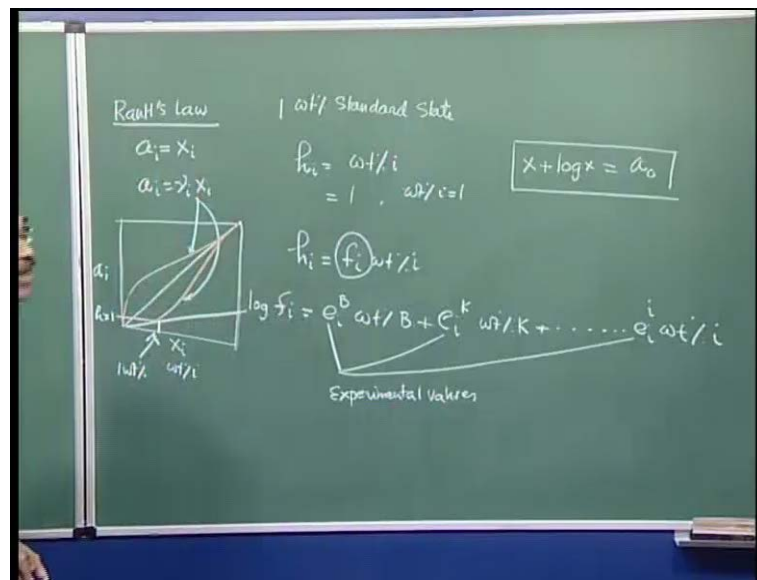 Rault's Law
a_i = x_i
a_i = γ_i x_i
a_i
h=1
x_i
1wt% wt%i
1 wt% Standard State
h_i = wt% i
= 1 , wt% i=1
h_i = f_i wt% i
log f_i = e_i^B wt% B + e_i^K wt% K + ....... e_i^i wt% i
Experimental values
x + log x = a_0